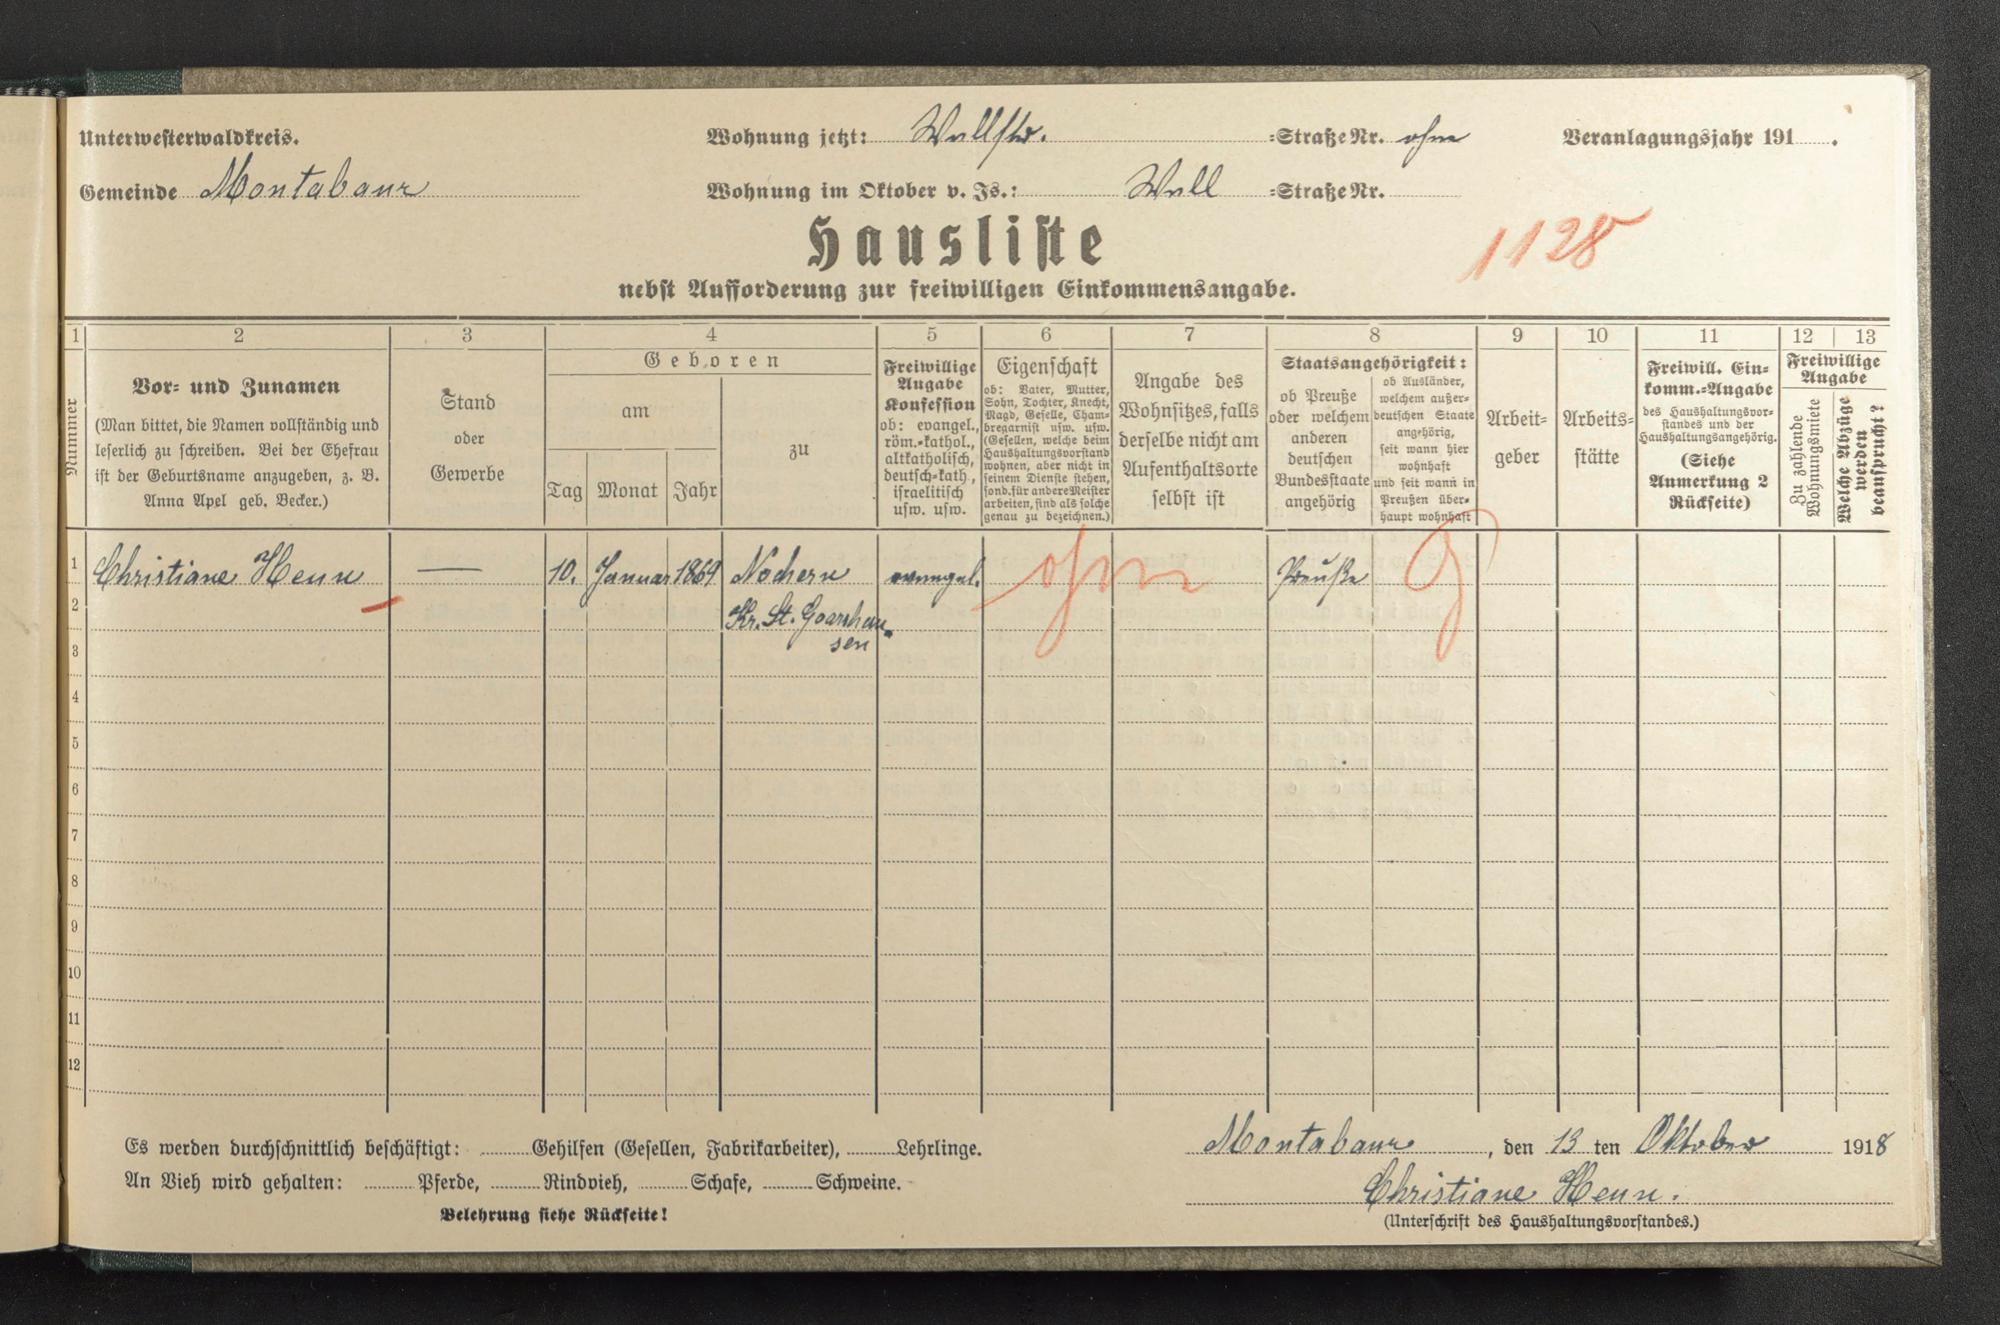 Unterwesterwaldkreis.
Wohnung jetzt: Wallstr. =Straße Nr. ohne
Veranlagungsjahr 191 .
Gemeinde Montabaur
Wohnung im Oktober v. Js.: Wall =Straße Nr.
Hausliste
1128
nebst Aufforderung zur freiwilligen Einkommensangabe.
1 2 3 4 5 6 7 8 9 10 11 12 13
Nummer
Vor= und Zunamen
(Man bittet, die Namen vollständig und
leserlich zu schreiben. Bei der Ehefrau
ist der Geburtsname anzugeben, z. B.
Anna Apel geb. Becker.)
Stand
oder
Gewerbe
Geboren
am
Tag Monat Jahr
zu
Freiwillige
Angabe
Konfession
ob: evangel.,
röm.=kathol.,
altkatholisch,
deutsch=kath.,
israelitisch
usw. usw.
Eigenschaft
ob: Vater, Mutter,
Sohn, Tochter, Knecht,
Magd, Geselle, Cham=
bregarnist usw. usw.
(Gesellen, welche beim
Haushaltungsvorstand
wohnen, aber nicht in
seinem Dienste stehen,
sond. für andere Meister
arbeiten, sind als solche
genau zu bezeichnen.)
Angabe des
Wohnsitzes, falls
derselbe nicht am
Aufenthaltsorte
selbst ist
Staatsangehörigkeit:
ob Preuße
oder welchem
anderen
deutschen
Bundesstaate
angehörig
ob Ausländer,
welchem außer=
deutschen Staate
angehörig,
seit wann hier
wohnhaft
und seit wann in
Preußen über=
haupt wohnhaft
Arbeit=
geber
Arbeits=
stätte
Freiwill. Ein=
komm.=Angabe
des Haushaltungsvor=
standes und der
Haushaltungsangehörig.
(Siehe
Anmerkung 2
Rückseite)
Freiwillige
Angabe
Zu zahlende
Wohnungsmiete
Welche Abzüge
werden
beansprucht?
1 Christiane Henn — 10. Januar 1869 Nochern evangel. ohne Preuße
2 Kr. St. Goarshau=
sen
3
4
5
6
7
8
9
10
11
12
Es werden durchschnittlich beschäftigt: Gehilfen (Gesellen, Fabrikarbeiter), Lehrlinge.
An Vieh wird gehalten: Pferde, Rindvieh, Schafe, Schweine.
Belehrung siehe Rückseite!
Montabaur, den 13 ten Oktober 1918
Christiane Henn.
(Unterschrift des Haushaltungsvorstandes.)